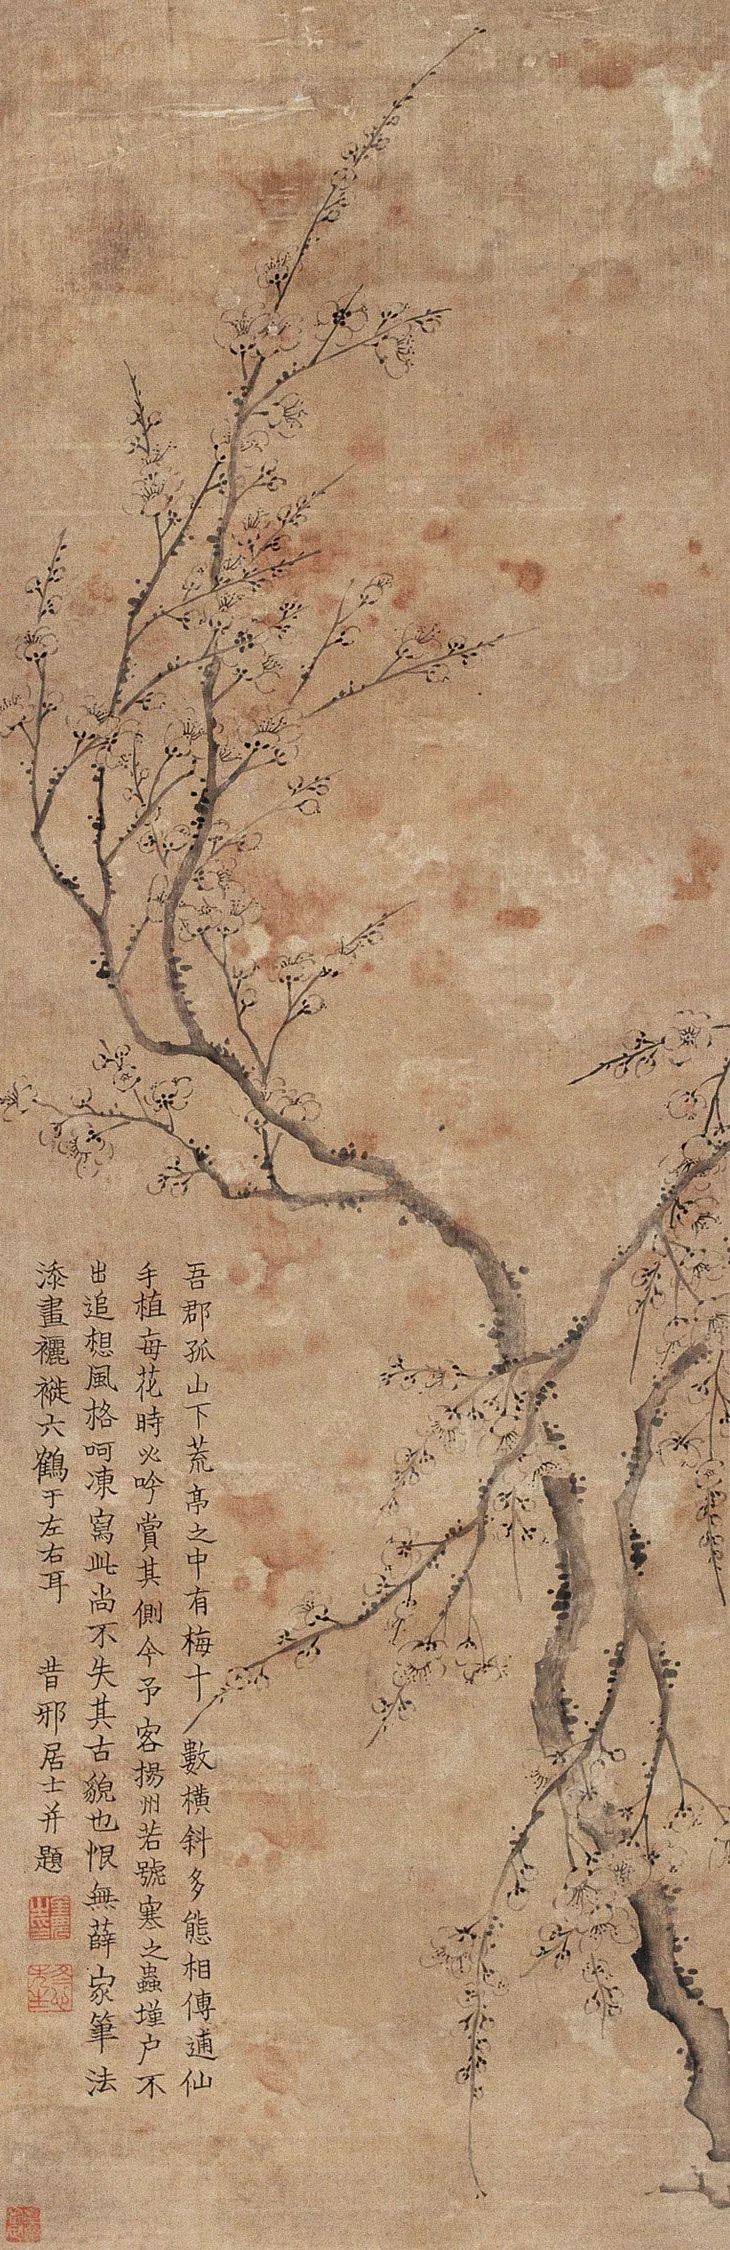 吾郡孤山下荒亭之中有梅十數橫斜多態相傳逋仙
手植每花時必吟賞其側今予客揚州若號寒之蟲墐户不
出追想風格呵凍寫此尚不失其古貌也恨無薛家筆法
添畫褵褷六鶴于左右耳 昔邪居士并題